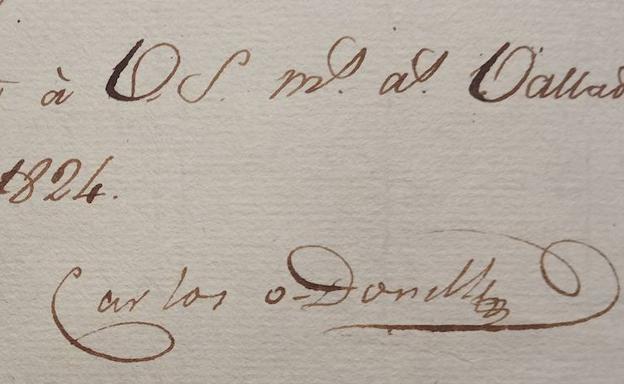 à V.S. m.s a.s Vallad
1824.
Carlos o-Donell